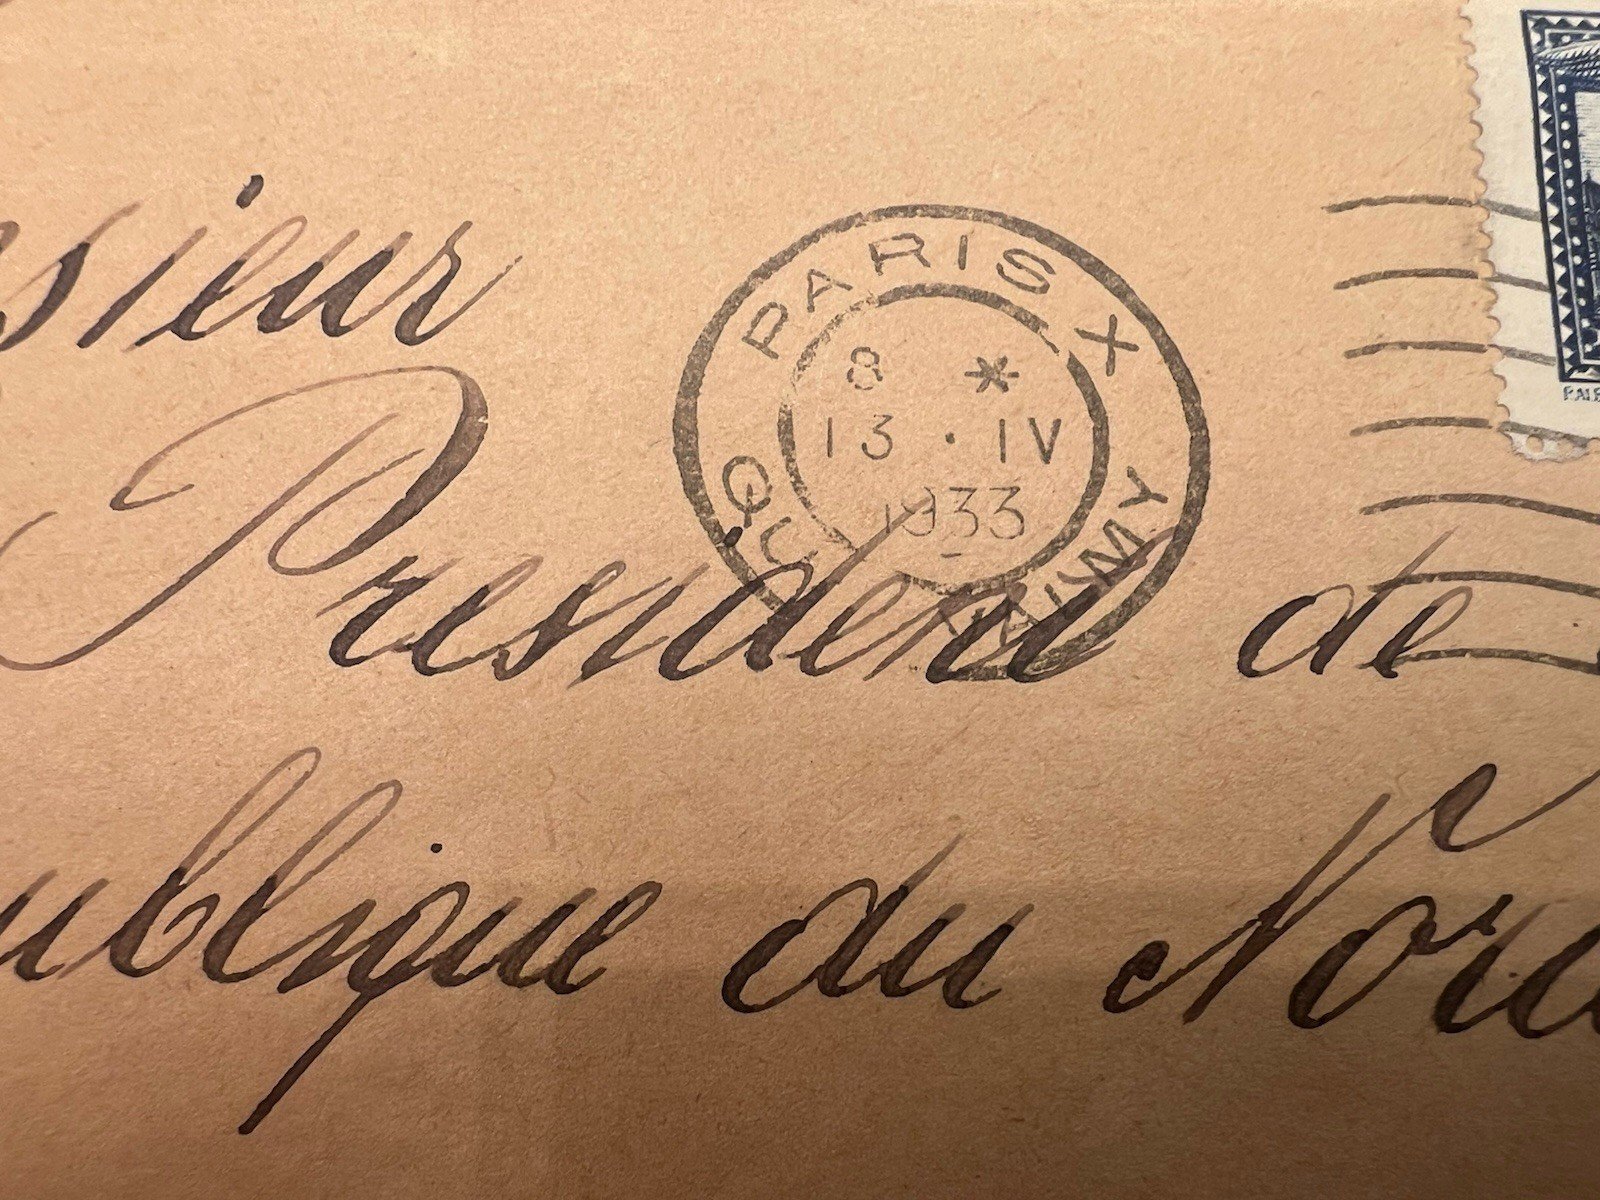 sieur
President de
ublique du Nord
PARIS X
8 *
13 · IV
1933